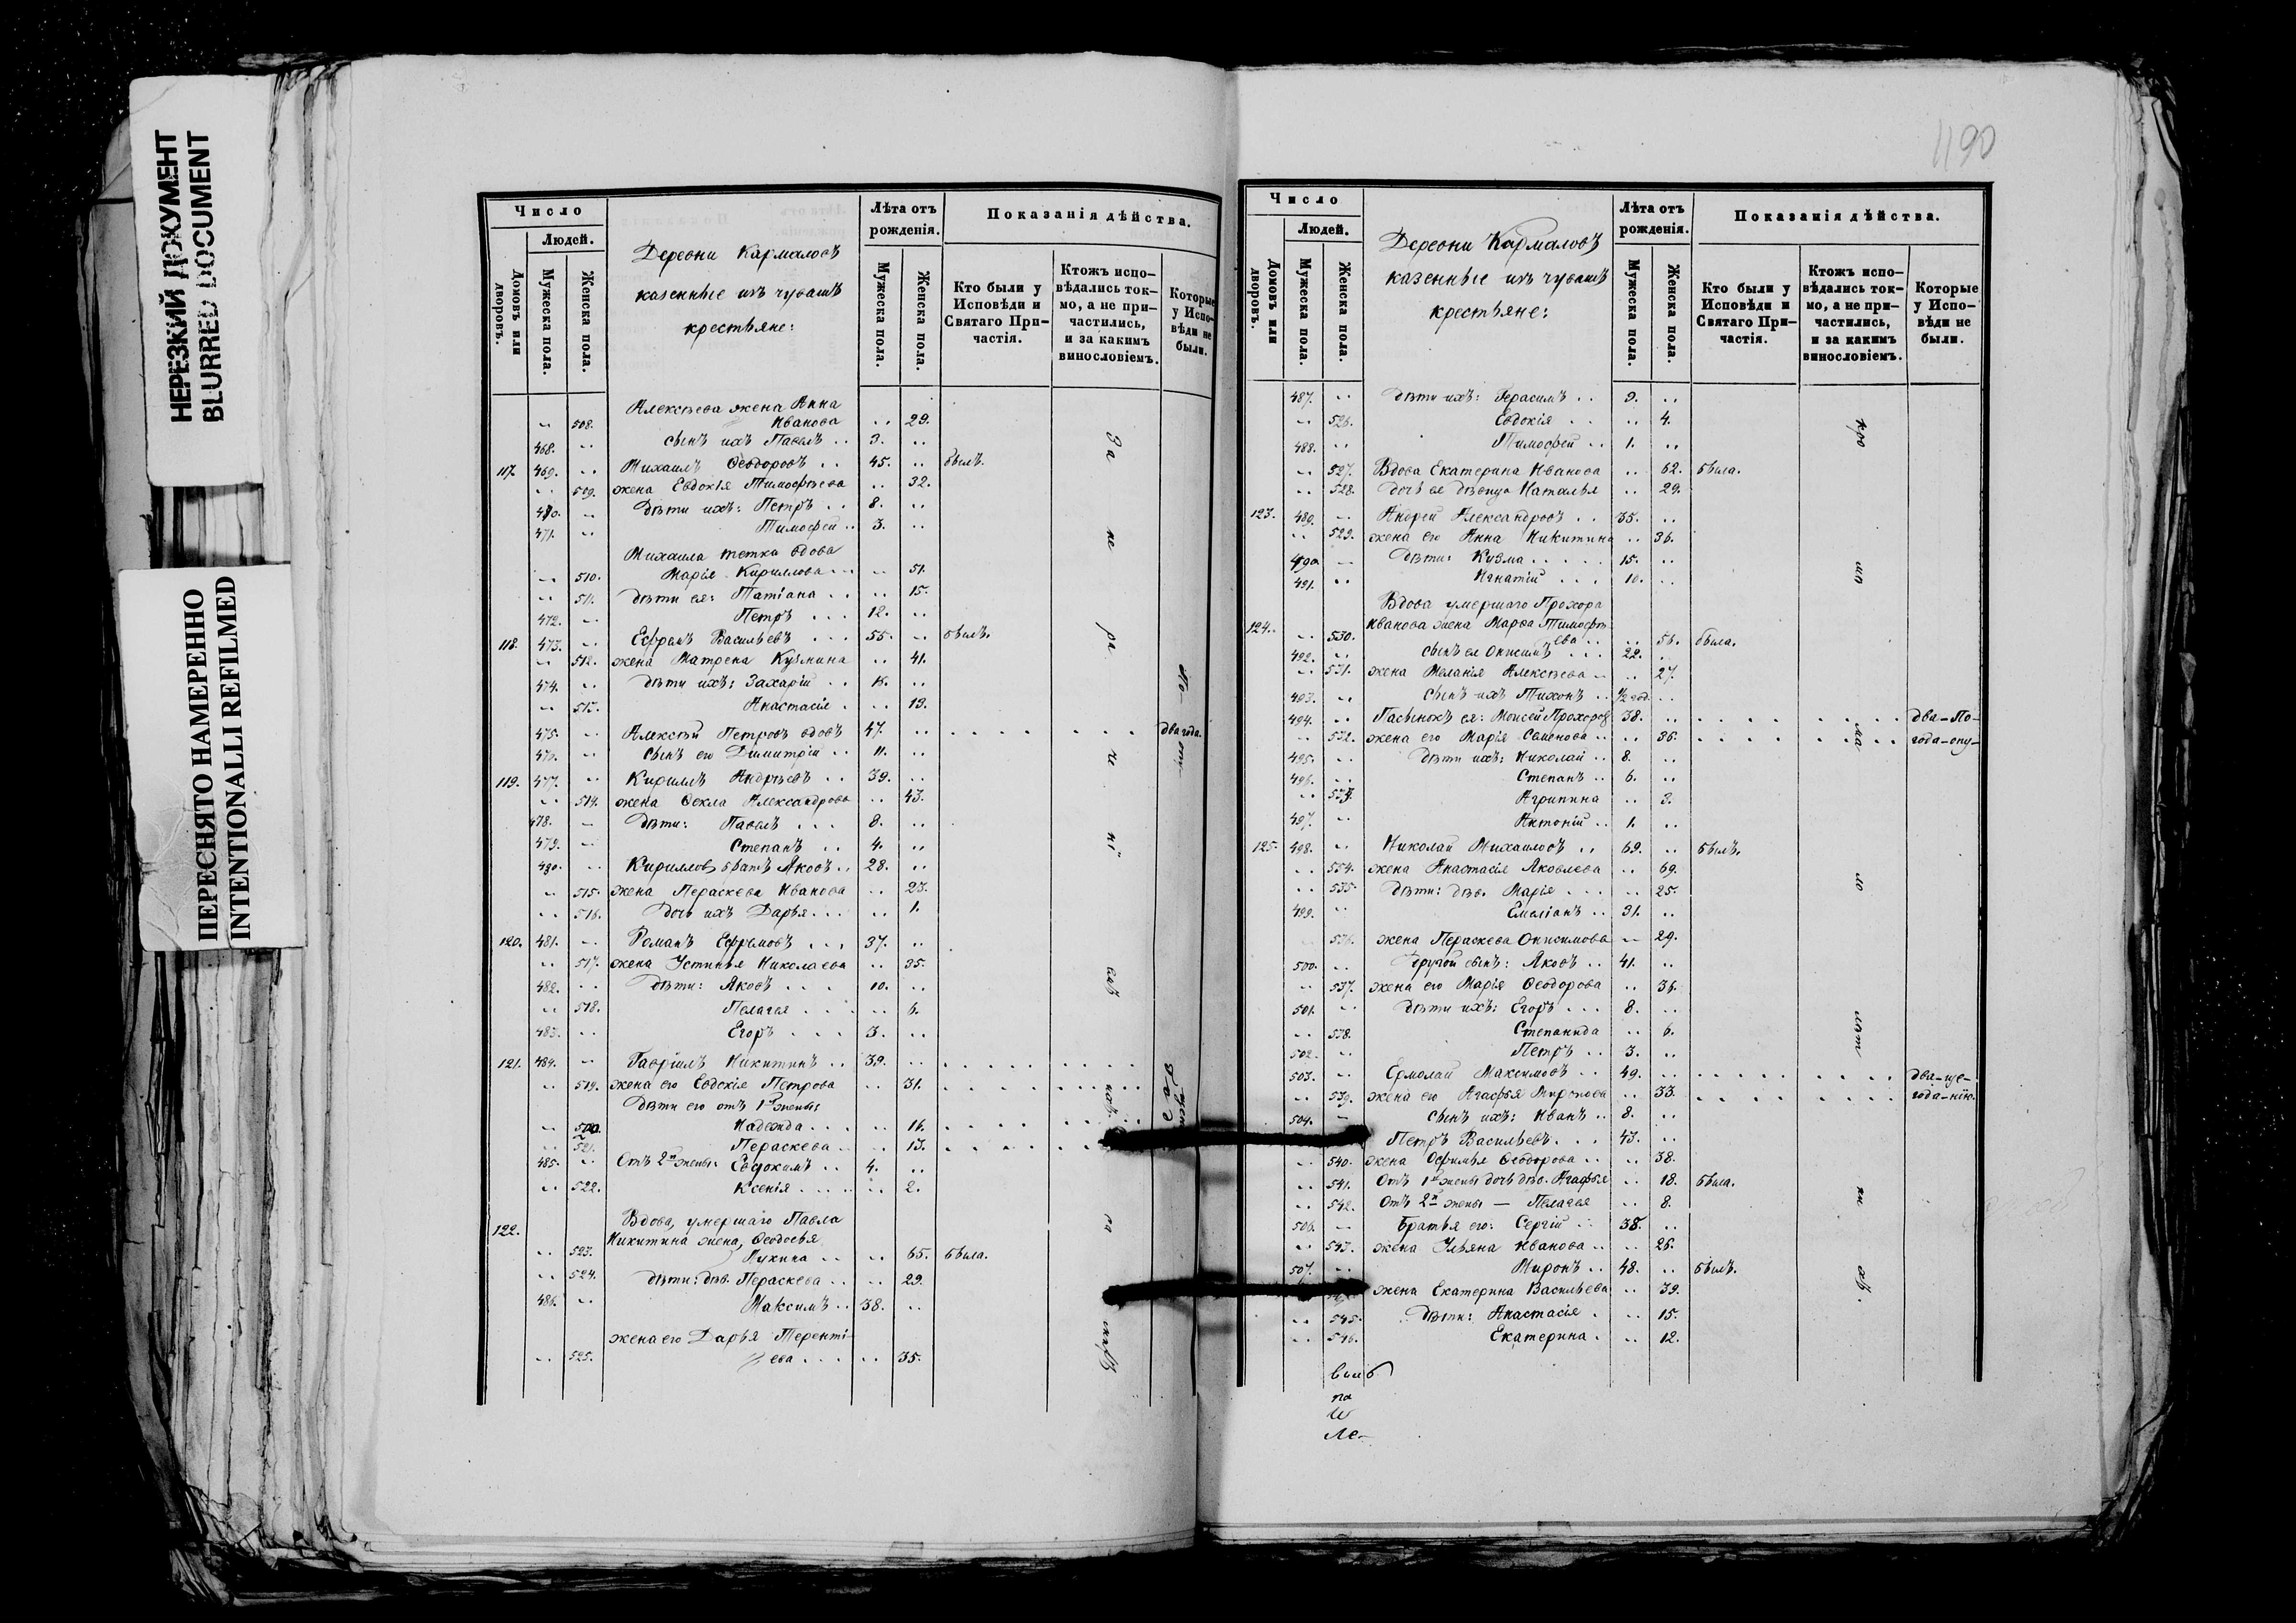 НЕРЕЗКИЙ ДОКУМЕНТ
BLURRED DOCUMENT
ПЕРЕСНЯТО НАМЕРЕННО
INTENTIONALLI REFILMED
Число
Людей.
Домовъ или дворовъ.
Мужеска пола.
Женска пола.
Деревни Кармаловъ
казенные изъ чувашъ
крестьяне:
Лѣта отъ рожденія.
Мужеска пола.
Женска пола.
Показанія дѣйства.
Кто были у Исповѣди и Святаго Причастія.
Ктожъ исповѣдались токмо, а не причастились, и за какимъ винословіемъ.
Которые у Исповѣди не были.
Алексѣева жена Анна
508. Иванова .. 29.
468. .. сынъ ихъ Павелъ .. 3. ..
117. 469. .. Михаилъ Ѳеодоровъ .. 45. .. былъ.
.. 509. жена Евдокія Тимофѣева .. 32.
470. .. дѣти ихъ: Петръ .. 8. ..
471. .. Тимофей .. 3. ..
Михаила тетка вдова
.. 510. Марія Кириллова .. 51.
.. 511. дѣти ея: Татіана .. 15.
472. .. Петръ ... 12. ..
118. 473. .. Ефремъ Васильевъ ... 55. .. былъ.
.. 512. жена Матрена Кузмина .. 41.
474. .. дѣти ихъ: Захарій ..
.. 513. Анастасія . .. 13.
475. .. Алексѣй Петровъ вдовъ 47. .. два года.
476. .. сынъ его Димитрій .. 11. ..
119. 477. .. Кириллъ Андреевъ .. 39. ..
.. 514. жена Ѳекла Александрова .. 43.
478. .. дѣти: Павелъ ... 8. ..
479. .. Степанъ .. 4. ..
480. .. Кириллов братъ Яковъ .. 28. ..
.. 515. жена Пераскева Иванова .. 23.
.. 516. дочь ихъ Дарья ... .. 1.
120. 481. .. Романъ Ефремовъ ... 37. ..
.. 517. жена Устинья Николаева .. 35.
482. .. дѣти: Яковъ ... 10. ..
.. 518. Пелагея .. 6.
483. .. Егоръ ... 3. ..
121. 484. .. Гавріилъ Никитинъ .. 39. ..
.. 519. жена его Евдокія Петрова .. 31.
дѣти его отъ 1й жены:
.. 520. Надежда ... .. 16.
.. 521. Пераскева .. .. 13.
485. .. Отъ 2й жены: Евдокимъ .. 4. ..
.. 522. Ксенія ... .. 2.
122. Вдова, умершаго Павла
Никитина жена, Ѳеодосья
.. 523. Лукина .. .. 65. была.
.. 524. дѣти: дѣв. Пераскева .. .. 29.
486. .. Максимъ .. 38. ..
жена его Дарья Теренті-
.. 525. ева ... .. 35.
1190
Число
Людей.
Домовъ или дворовъ.
Мужеска пола.
Женска пола.
Деревни Кармаловъ
казенные изъ чувашъ
крестьяне:
Лѣта отъ рожденія.
Мужеска пола.
Женска пола.
Показанія дѣйства.
Кто были у Исповѣди и Святаго Причастія.
Ктожъ исповѣдались токмо, а не причастились, и за какимъ винословіемъ.
Которые у Исповѣди не были.
487. .. дѣти ихъ: Герасимъ .. 9. ..
.. 526. Евдокія .. .. 4.
488. .. Тимофей .. 1. ..
.. 527. Вдова Екатерина Иванова .. 62. была.
.. 528. дочь ея дѣвица Наталья .. 29.
123. 489. .. Андрей Александровъ .. 35. ..
.. 529. жена его Анна Никитина .. 36.
490. .. дѣти: Кузма .... 15. ..
491. .. Игнатій ... 10. ..
Вдова умершаго Прохора
124. .. 530. Иванова жена Марѳа Тимофѣева .. 56. была.
492. .. сынъ ея Онисимъ ... 22. ..
.. 531. жена Меланія Алексѣева .. .. 27.
493. .. сынъ ихъ Тихонъ .. ½ год. ..
494. .. Пасынокъ ея: Моисей Прохоровъ 38. .. два-По-
.. 532. жена его Марія Семенова .. .. 36. года-опу-
495. .. дѣти ихъ: Николай .. 8. ..
496. .. Степанъ .. 6. ..
.. 533. Агрипина .. 3.
497. .. Антоній .. 1. ..
125. 498. .. Николай Михаиловъ .. 69. .. былъ.
.. 534. жена Анастасія Яковлева .. 69.
.. 535. дѣти: дѣв. Марія ... .. 25.
499. .. Емеліанъ .. 31. ..
536. жена Пераскева Онисимова .. 29.
500. .. другой сынъ: Яковъ .. 41. ..
.. 537. жена его Марія Ѳеодорова .. 36.
501. .. дѣти ихъ: Егоръ ... 8. ..
.. 538. Степанида .. 6.
502. .. Петръ .. 3. ..
503. .. Ермолай Максимовъ .. 49. .. два-ще-
.. 539. жена его Агафья Миронова .. 33. года-нію.
504. .. сынъ ихъ: Иванъ .. 8. ..
Петръ Васильевъ ... 43. ..
.. 540. жена Ѳофимья Ѳеодорова .. .. 38.
.. 541. Отъ 1й жены дочь дѣв. Агафья .. 18. была.
.. 542. Отъ 2й жены — Пелагея .. 8.
506. .. Братья его: Сергій .. 38. ..
.. 543. жена Ульяна Иванова .. .. 26.
507. .. Миронъ .. 48. .. былъ.
жена Екатерина Васильева .. 39.
.. 545. дѣти: Анастасія . .. 15.
.. 546. Екатерина . .. 12.